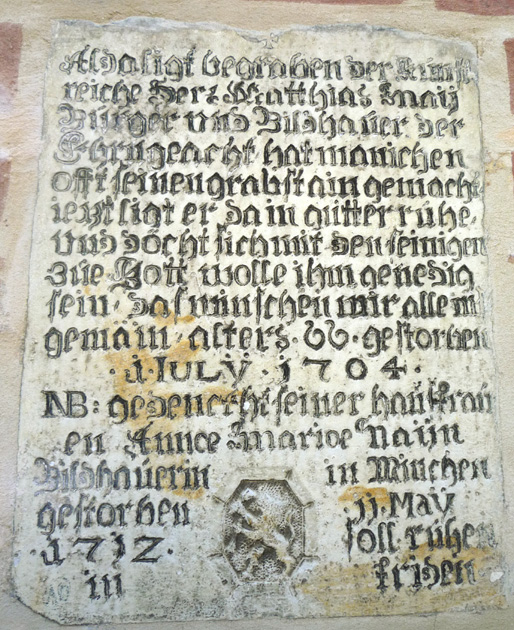 Alda ligt begraben der Kunst
reiche Herr Matthias Naij
Burger und Bildhauer der
Ehrngeacht hat manichen
offt seinen grabstain gemacht
iezt ligt er da in gutter ruhe.
und docht sich mit den seinigen
zue Gott wolle ihm genedig
sein. das winschen wir alle in
gemain. alters. 66. gestorben
. 1. IULY. 1704.
NB: gedenckht seiner haußfrau
en Annæ Mariæ Naijn
Bildhauerin in München
gestorben 11. May
.1712. soll ruhen
in friden.